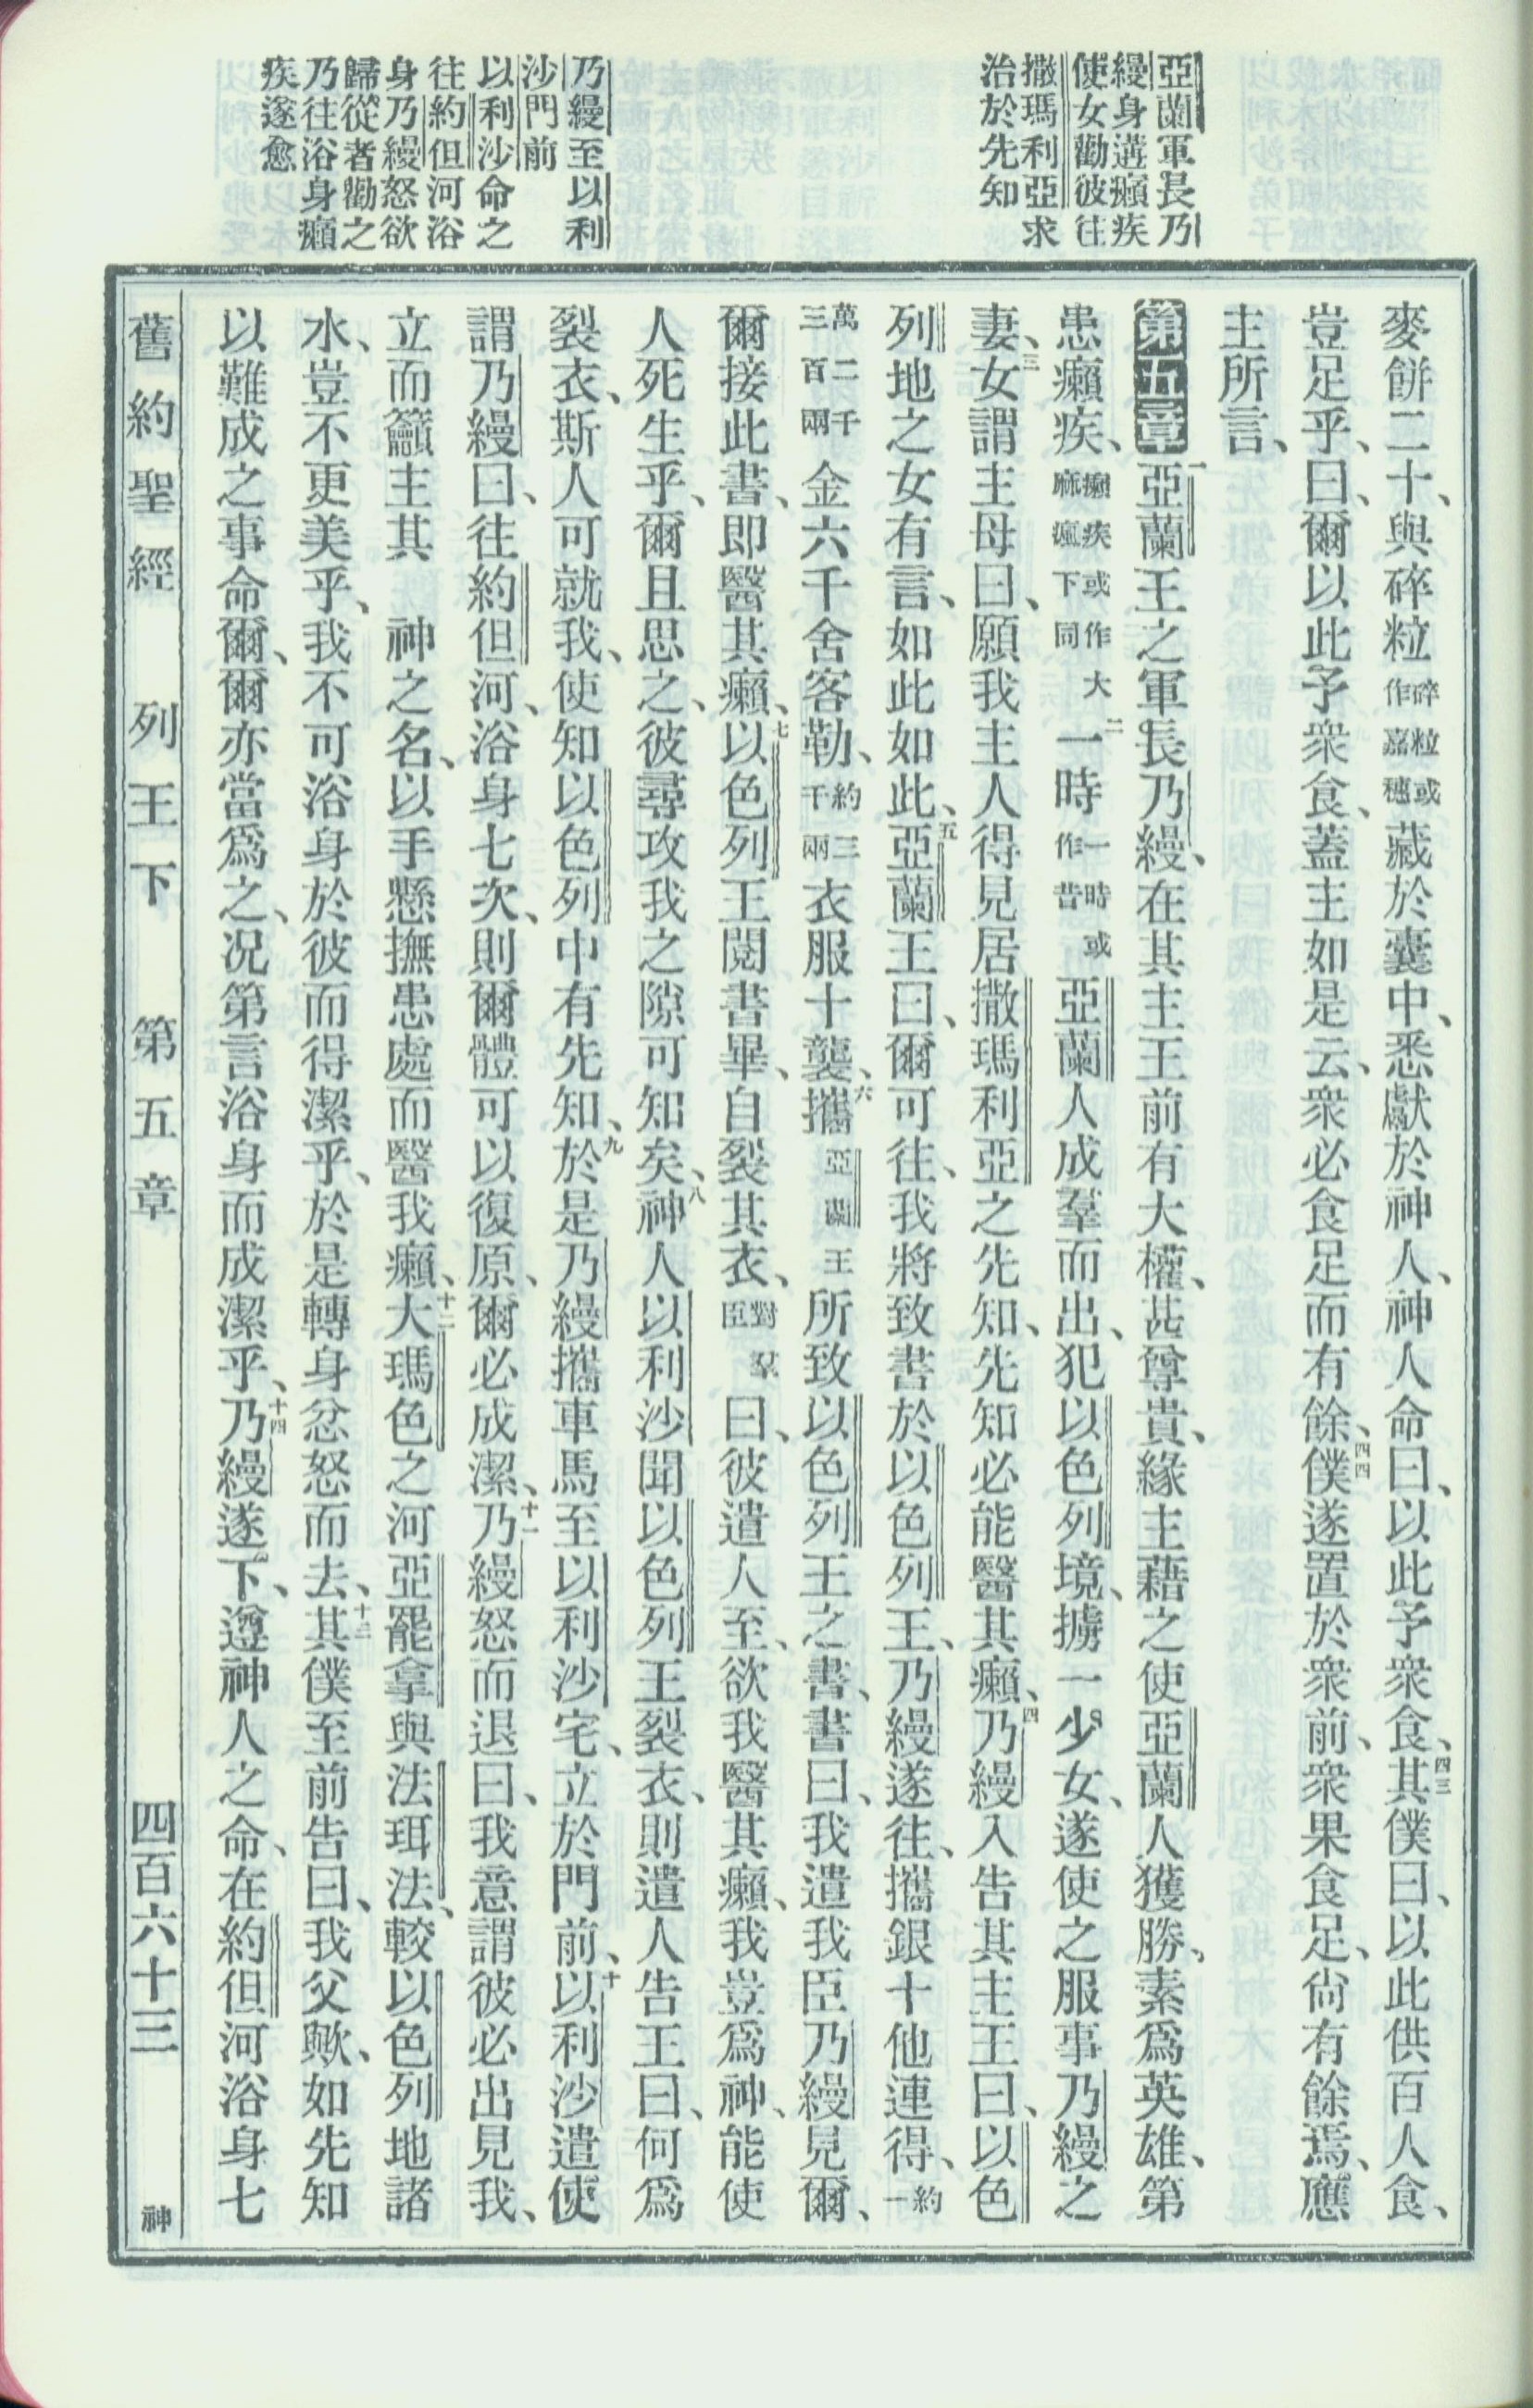 亞蘭軍長乃
縵身遘癩疾
使女勸彼往
撒瑪利亞求
治於先知
乃縵至以利
沙門前
以利沙命之
往約但河浴
身乃縵怒欲
歸從者勸之
乃往浴身癩
疾遂愈
麥餅二十、與碎粒碎粒或作嘉穗藏於囊中、悉獻於神人、神人命曰、以此予衆食、四三其僕曰、以此供百人食、
豈足乎、曰、爾以此予衆食、蓋主如是云、衆必食足而有餘、四四僕遂置於衆前、衆果食足、尙有餘焉、應
主所言、
第五章 一亞蘭王之軍長乃縵、在其主王前有大權、甚尊貴、緣主藉之使亞蘭人獲勝、素爲英雄、第
患癩疾、癩疾或作大痲瘋下同二一時一時或作昔亞蘭人成羣而出、犯以色列境、擄一少女、遂使之服事乃縵之
妻、三女謂主母曰、願我主人得見居撒瑪利亞之先知、先知必能醫其癩、四乃縵入告其主王曰、以色
列地之女有言、如此如此、五亞蘭王曰、爾可往、我將致書於以色列王、乃縵遂往、攜銀十他連得、約一
萬二千三百兩金六千舍客勒、約三千兩衣服十襲、六攜亞蘭王所致以色列王之書、書曰、我遣我臣乃縵見爾、
爾接此書、即醫其癩、七以色列王閱書畢、自裂其衣、對羣臣曰、彼遣人至、欲我醫其癩、我豈爲神、能使
人死生乎、爾且思之、彼尋攻我之隙可知矣、八神人以利沙聞以色列王裂衣、則遣人告王曰、何爲
裂衣、斯人可就我、使知以色列中有先知、九於是乃縵攜車馬至以利沙宅、立於門前、十以利沙遣使
謂乃縵曰、往約但河、浴身七次、則爾體可以復原、爾必成潔、十一乃縵怒而退曰、我意謂彼必出見我、
立而籲主其 神之名、以手懸撫患處而醫我癩、十二大瑪色之河亞罷拿與法珥法、較以色列地諸
水、豈不更美乎、我不可浴身於彼而得潔乎、於是轉身忿怒而去、十三其僕至前告曰、我父歟、如先知
以難成之事命爾、爾亦當爲之、况第言浴身而成潔乎、十四乃縵遂下、遵神人之命、在約但河浴身七
舊約聖經 列王下 第五章 四百六十三 神